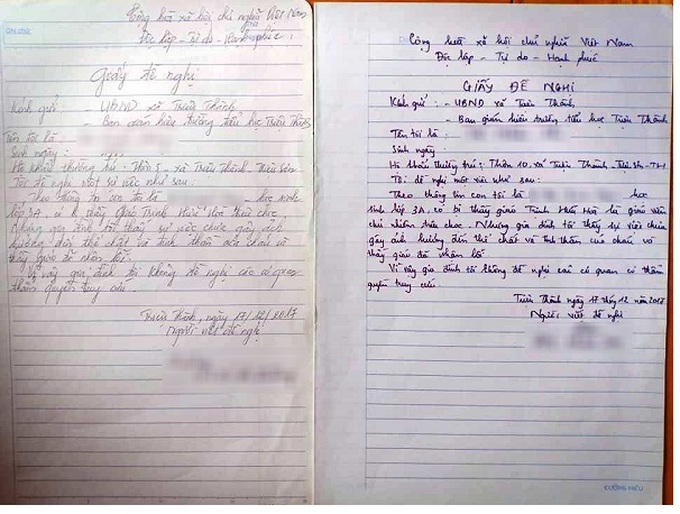 Cộng hòa xã hội chủ nghĩa Việt Nam
Độc lập - Tự do - Hạnh phúc
Giấy đề nghị
Kính gửi: - UBND xã Triệu Thành
- Ban giám hiệu trường tiểu học Triệu Thành
Tên tôi là
Sinh ngày:
Hộ khẩu thường trú: Thôn 5 - xã Triệu Thành - Triệu Sơn
Tôi đề nghị một sự việc như sau:
Theo thông tin con tôi là - học sinh
lớp 3A, có bị thầy giáo Trịnh Hữu Hòa trêu chọc,
Nhưng gia đình tôi thấy sự việc chưa gây ảnh
hưởng đến thể chất và tinh thần của cháu và
thầy giáo đã nhận lỗi.
Vì vậy gia đình tôi không đề nghị các cơ quan
thẩm quyền truy cứu.
Triệu Thành, ngày 17/12/2017
Người viết đề nghị
Cộng hoà xã hội chủ nghĩa Việt Nam
Độc lập - Tự do - Hạnh phúc
GIẤY ĐỀ NGHỊ
Kính gửi: - UBND xã Triệu Thành
- Ban giám hiệu trường tiểu học Triệu Thành
Tên tôi là:
Sinh ngày
Hộ khẩu thường trú: Thôn 10. xã Triệu Thành - Triệu Sơn - TH
Tôi đề nghị một việc như sau:
Theo thông tin con tôi là học
sinh lớp 3A, có bị thầy giáo Trịnh Hữu Hòa là giáo viên
chủ nhiệm trêu chọc. Nhưng gia đình tôi thấy sự việc chưa
gây ảnh hưởng đến thể chất và tinh thần của cháu và
thầy giáo đã nhận lỗi
Vì vậy gia đình tôi không đề nghị các cơ quan có thẩm
quyền truy cứu
Triệu Thành ngày 17 th 12 năm 2017
Người viết đề nghị